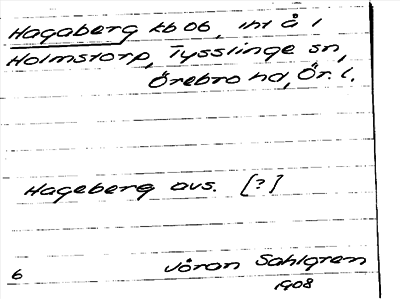 Hagaberg kb 06, int å l
Holmstorp, Tysslinge sn,
Örebro hd, Ör. l.
Hageberg avs. [?]
6 Jöran Sahlgren
1908